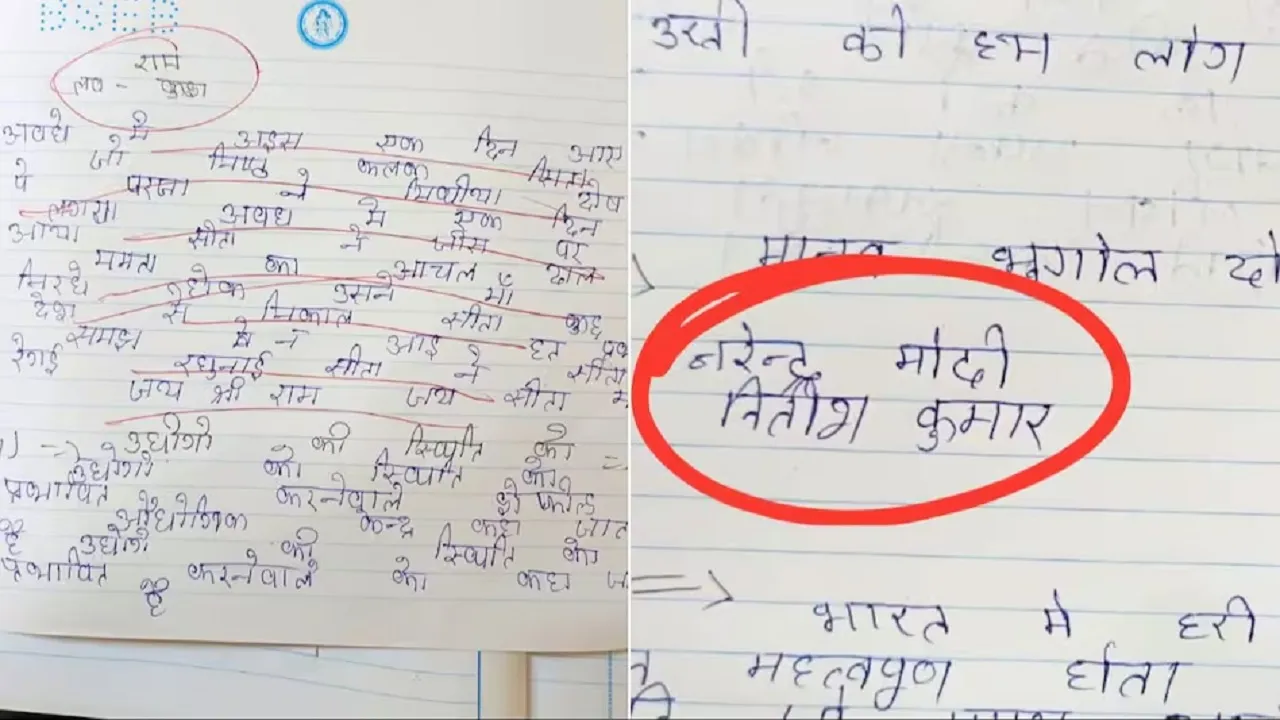 BSEB
राम
लव - कुश
अवधे में आइस एक दिन आए
पे जो कलक सिता
परजा ने दोष
लगाया अवध मे एक दिन
आया सीता ने जोस पर
ममता का आचल डाल
उसने माँ
देश से निकाल सीता कुछ
समझ मे न आइ
रघुनाई सीता ने सीता
जय श्री राम जय सीता म
उधोगो की स्थिति को
उधोगो को स्थिति को
प्रभावित करनेवाले
औधोगिक केन्द्र कहा जात
है उधोगो की स्थिति को
प्रभावित करनेवाले को कहा ज
है
उरती को हम लोग
मानव भुगोल दो
नरेन्द्र मोदी
नितीश कुमार
=>
भारत मे हरी
महत्वपुण होता